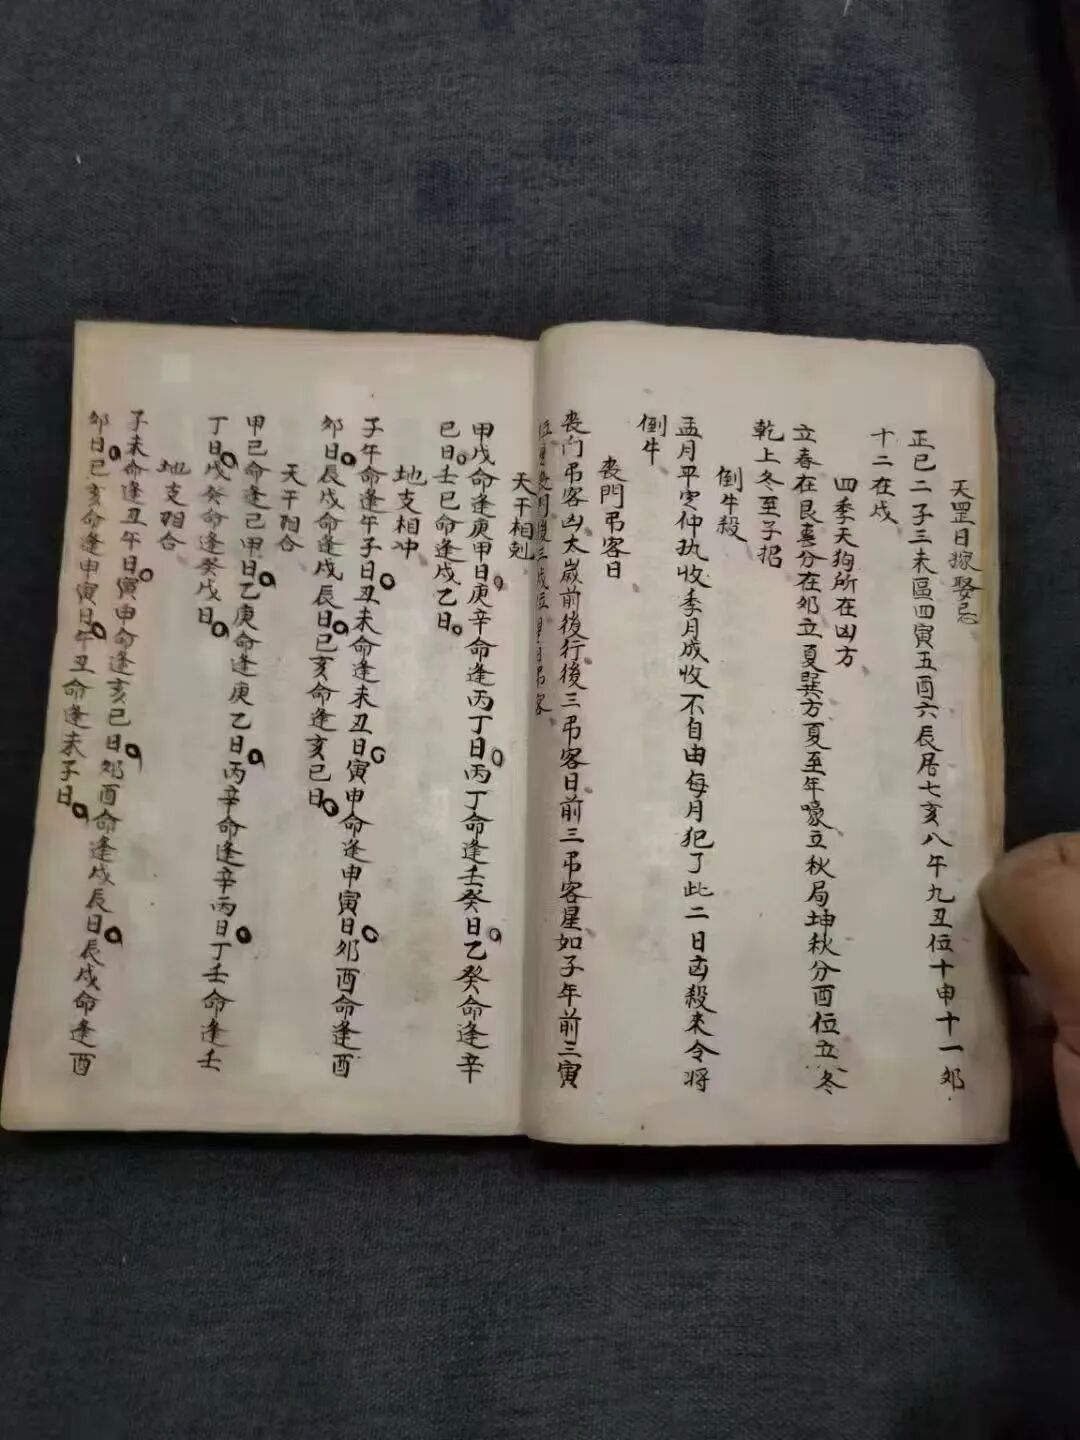 天罡日嫁娶忌
正巳二子三未區四寅五酉六辰居七亥八午九丑位十申十一夘
十二在戌
四季天狗所在凶方
立春在艮春分在夘立夏巽方夏至午嚎立秋局坤秋分酉位立冬
乾上冬至子招
倒牛殺
孟月平定仲执收季月成收不自由每月犯了此二日凶殺来令将
倒牛
丧門弔客日
丧门弔客凶太嵗前後行後三弔客日前三弔客星如子年前三寅
位
天干相剋
甲戊命逢庚甲日庚辛命逢丙丁日丙丁命逢壬癸日乙癸命逢辛
巳日壬巳命逢戊乙日
地支相冲
子午命逢午子日丑未命逢未丑日寅申命逢申寅日夘酉命逢酉
夘日辰戌命逢戌辰日巳亥命逢亥巳日
天干相合
甲己命逢己甲日乙庚命逢庚乙日丙辛命逢辛丙日丁壬命逢壬
丁日戊癸命逢癸戊日
地支相合
子未命逢丑午日寅申命逢亥巳日夘酉命逢戌辰日辰戌命逢酉
夘日巳亥命逢申寅日午丑命逢未子日